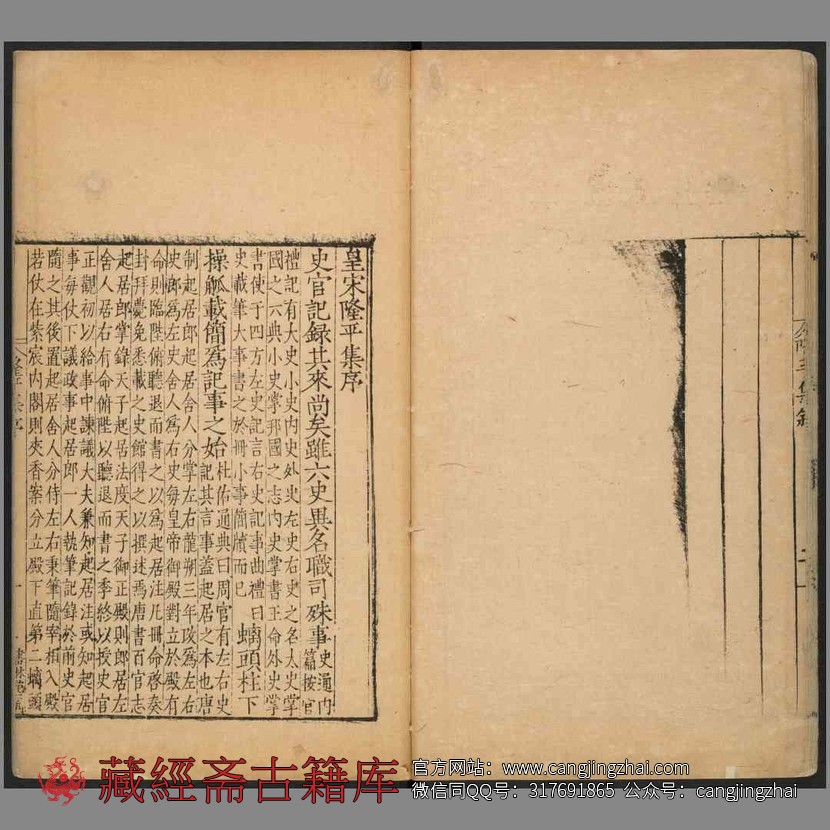 隆平集
二
皇宋隆平集序
史官記録其來尚矣雖六史異名職司殊事史通内
篇按官
禮記有大史小史内史外史左史右史之名太史掌
國之六典小史掌邦國之志内史掌書王命外史掌
書使于四方左史記言右史記事曲禮曰
史載筆大事書之於冊小事簡牘而已
螭頭柱下
操觚載簡爲記事之始杜佑通典曰周官有左右史
記其言事蓋起居之本也唐
制起居郎起居舍人分掌左右龍朔三年攺爲左右
史郎爲左史舍人爲右史毎皇帝御殿對立於殿有
命則臨陛俯聽退而書之以爲起居注凡冊命啓奏
封拜薨免悉載之史館得之以撰述焉唐書百官志
起居郎掌錄天子起居法度天子御正殿則郎居左
舍人居右有命俯陛以聽退而書之季終以授史官
正觀初以給事中諫議大夫兼知起居注或知起居
事毎仗下議政事起居郎一人執筆記錄於前史官
隨之其後置起居舍人分侍左右秉筆隨宰相入殿
若仗在紫宸内閣則夾香案分立殿下直第二螭頭
一
藏經斋古籍库
官方网站：www.cangjingzhai.com
微信同QQ号：317691865 公众号：cangjingzhai